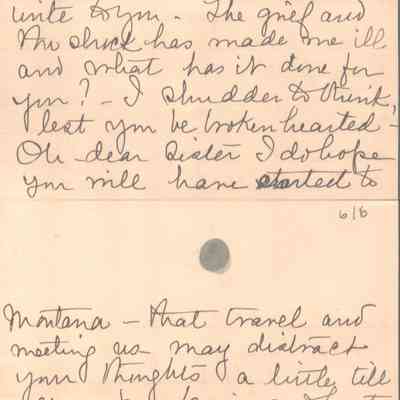 write to you. The grief and
the shock has made me ill
and what has it done for
you? – I shudder to think,
lest you be broken hearted –
Oh dear Sister I do hope
you will have started to
6/6
Montana – that travel and
meeting us may distract
your thoughts a little till